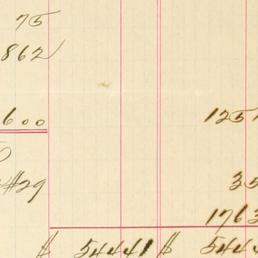 75
862
600 125
#29 35
1763
$ 54441 $ 544